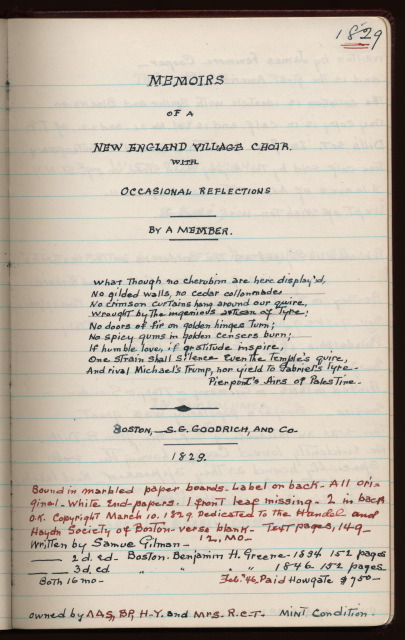 1829
MEMOIRS
OF A
NEW ENGLAND VILLAGE CHOIR.
WITH
OCCASIONAL REFLECTIONS
BY A MEMBER.
What Though no cherubim are here display'd,
No gilded walls, no cedar collonnades
No crimson curtains hang around our quire,
Wrought by The ingenious artisan of Tyre;
No doors of fir on golden hinges turn;
No spicy gums in golden censers burn;
If humble love, if gratitude inspire,
One strain shall silence even the Temple's quire,
And rival Michael's Trump, nor yield To Gabriel's Lyre-
Pierpont's Airs of Palestine.
BOSTON, S.G. GOODRICH, AND Co-
1829.
Bound in marbled paper boards. Label on back. All ori-
ginal. White End-papers. 1 front leaf missing- 2 in back
O.K. Copyright March 10, 1829 Dedicated to the Handel and
Haydn Society of Boston- verse blank- Text pages, 149-
Written by Samuel Gilman- 12, mo-
2d. ed- Boston- Benjamin H. Greene- 1834 152 pages
3d. ed " " " 1846 152 pages
Both 16 mo- Feb. '46 Paid Howgate $7.50-
owned by AAS, BP, H-Y. and Mrs. R.C.T. MINT Condition.